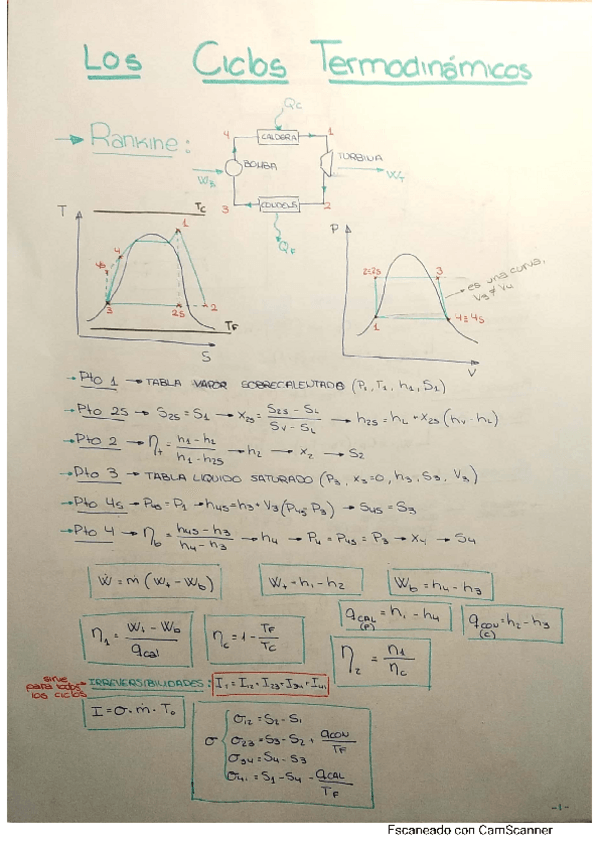 Los Ciclos Termodinámicos
→ Rankine:
Qc
4 CALDERA 1
BOMBA TURBINA
WB WT
3 CONDENS 2
QF
T Tc
1
4
4s
3 2s 2
TF
S
P
2=2s 3
→ es una curva,
V3 ≠ V4
1 4=4s
V
→ Pto 1 → TABLA VAPOR SOBRECALENTADO (P1, T1, h1, S1)
→ Pto 2s → S2s = S1 → x2s = (S2s - SL)/(SV - SL) → h2s = hL + x2s (hV - hL)
→ Pto 2 → ηt = (h1 - h2)/(h1 - h2s) → h2 → x2 → S2
→ Pto 3 → TABLA LIQUIDO SATURADO (P3, x3=0, h3, S3, V3)
→ Pto 4s → P4s = P1 → h4s = h3 + V3 (P4s - P3) → S4s = S3
→ Pto 4 → ηb = (h4s - h3)/(h4 - h3) → h4 → P4 = P4s = P3 → x4 → S4
Ẇ = ṁ (Wt - Wb) Wt = h1 - h2 Wb = h4 - h3
qCAL (F) = h1 - h4 qCON (C) = h2 - h3
η1 = (Wt - Wb)/qcal ηc = 1 - TF/TC η2 = η1/ηc
sirve para todos los ciclos
→ IRREVERSIBILIDADES: IT = I12 + I23 + I34 + I41
I = σ · ṁ · To
σ { σ12 = S2 - S1
σ23 = S3 - S2 + qCON/TF
σ34 = S4 - S3
σ41 = S1 - S4 - qCAL/TF
-1-
Escaneado con CamScanner